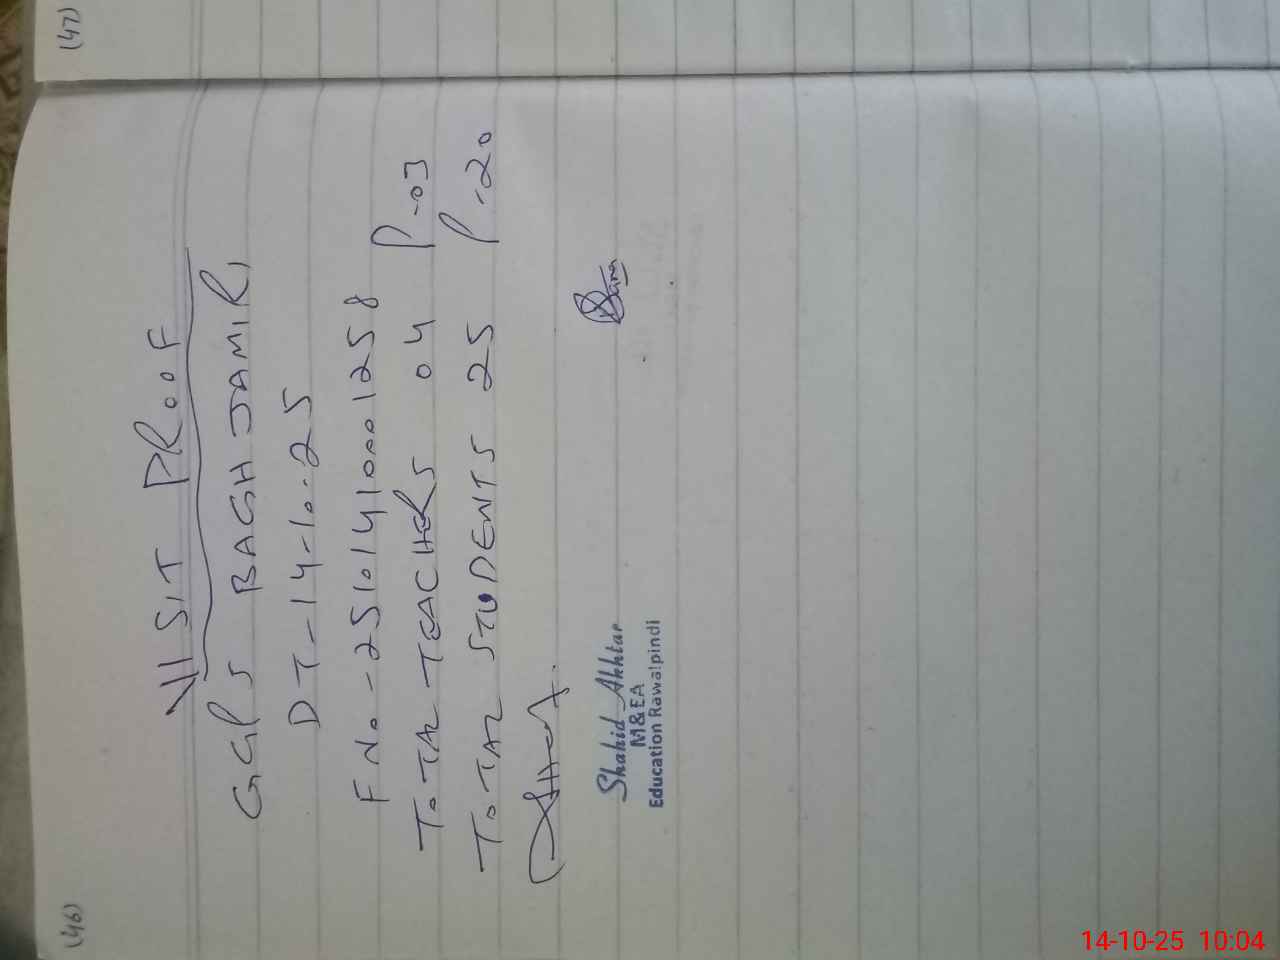 (47)
(46)
VISIT PROOF
GGPS BAGH JAMIRI
DT-14-10-25
F No -25101410001258
TOTAL TEACHERS 04 P-03
TOTAL STUDENTS 25 P-20
Shahid Akhtar
M&EA
Education Rawalpindi
14-10-25 10:04